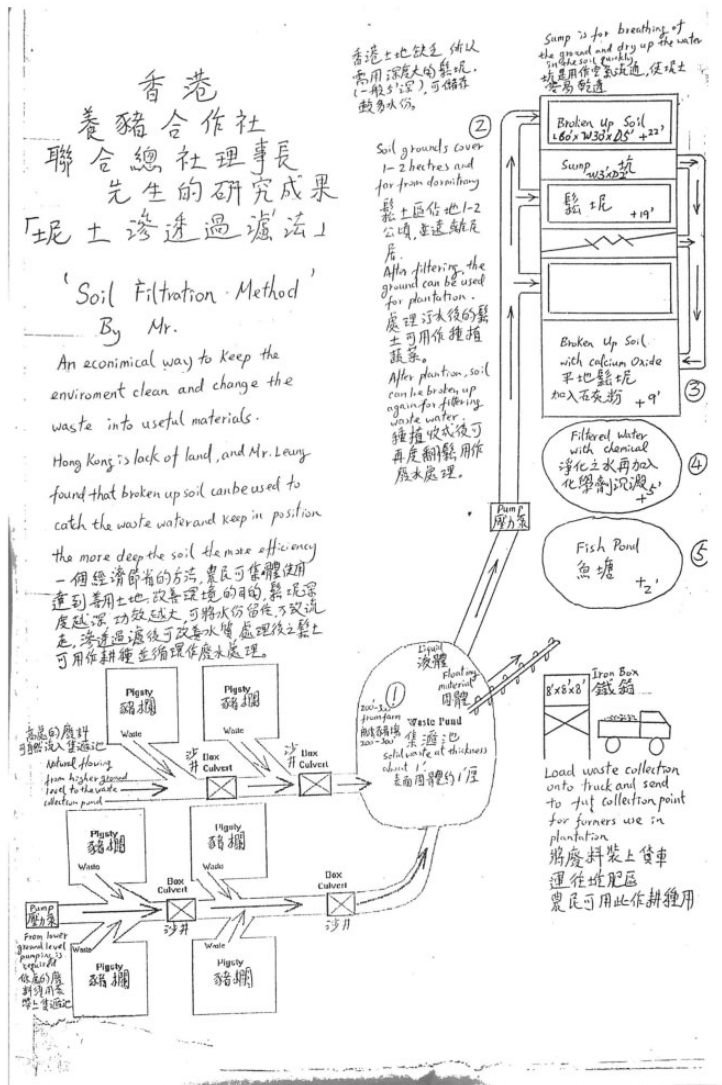 香港
養豬合作社
聯合總社理事長
先生的研究成果
「坭土滲透過濾法」
'Soil Filtration Method'
By Mr.
An econimical way to keep the
enviroment clean and change the
waste into useful materials.
Hong Kong is lack of land, and Mr. Leung
found that broken up soil can be used to
catch the waste water and keep in position
the more deep the soil the more efficiency
一個經濟節省的方法,農民可集體使用
達到善用土地,改善環境的目的,鬆坭深
度越深功效越大,可將水份留住,不致流
走,滲透過濾後可改善水質,處理後之鬆土
可用作耕種並循環作廢水處理。
香港土地缺乏,所以
需用深度大的鬆坭.
(一般5'深),可儲存
較多水份。
②
Soil grounds cover
1-2 hectres and
far from dormitrany
鬆土區佔地1-2
公頃,並遠離民
居.
After filtering, the
ground can be used
for plantation.
處理污水後的鬆
土可用作種植
蔬菜。
After plantion, soil
can be broken up
again for filtering
waste water.
種植收成後可
再度翻鬆用作
廢水處理.
Sump is for breathing of
the ground and dry up the water
in the soil quickly
坑是用作空氣流通,使坭土
容易乾透
Broken Up Soil
L60'x W30'x D5' +22'
Sump 坑
W3'xD2'
鬆坭
+19'
Broken Up Soil
with calcium Oxide
平地鬆坭
加入石灰粉 +9'
③
Filtered Water
with chemical
淨化之水再加入
化學劑沉澱
+5'
④
Fish Pond
魚塘
+2'
⑤
Pump
壓力泵
Liquid
液體
Floating
material
固體
①
from farm
Waste Pond
集遞池
Solid waste at thickness
about 1'
表面固體約1'厚
8'x8'x8'
Iron Box
鐵箱
Load waste collection
onto truck and send
to collection point
for farmers use in
plantation
將廢料裝上貨車
運往堆肥區
農民可用此作耕種用
Pigsty
豬欄
Waste
Pigsty
豬欄
Waste
高處的廢料
可自然流入集遞池
Natural flowing
from higher ground
level to the waste
collection pond
沙井
Box
Culvert
沙井
Box
Culvert
Pigsty
豬欄
Waste
Pigsty
豬欄
Waste
Box
Culvert
沙井
Box
Culvert
沙井
Pump
壓力泵
From lower
ground level
pumping is
required
低處的廢
料須用泵
Waste
Pigsty
豬欄
Waste
Pigsty
豬欄